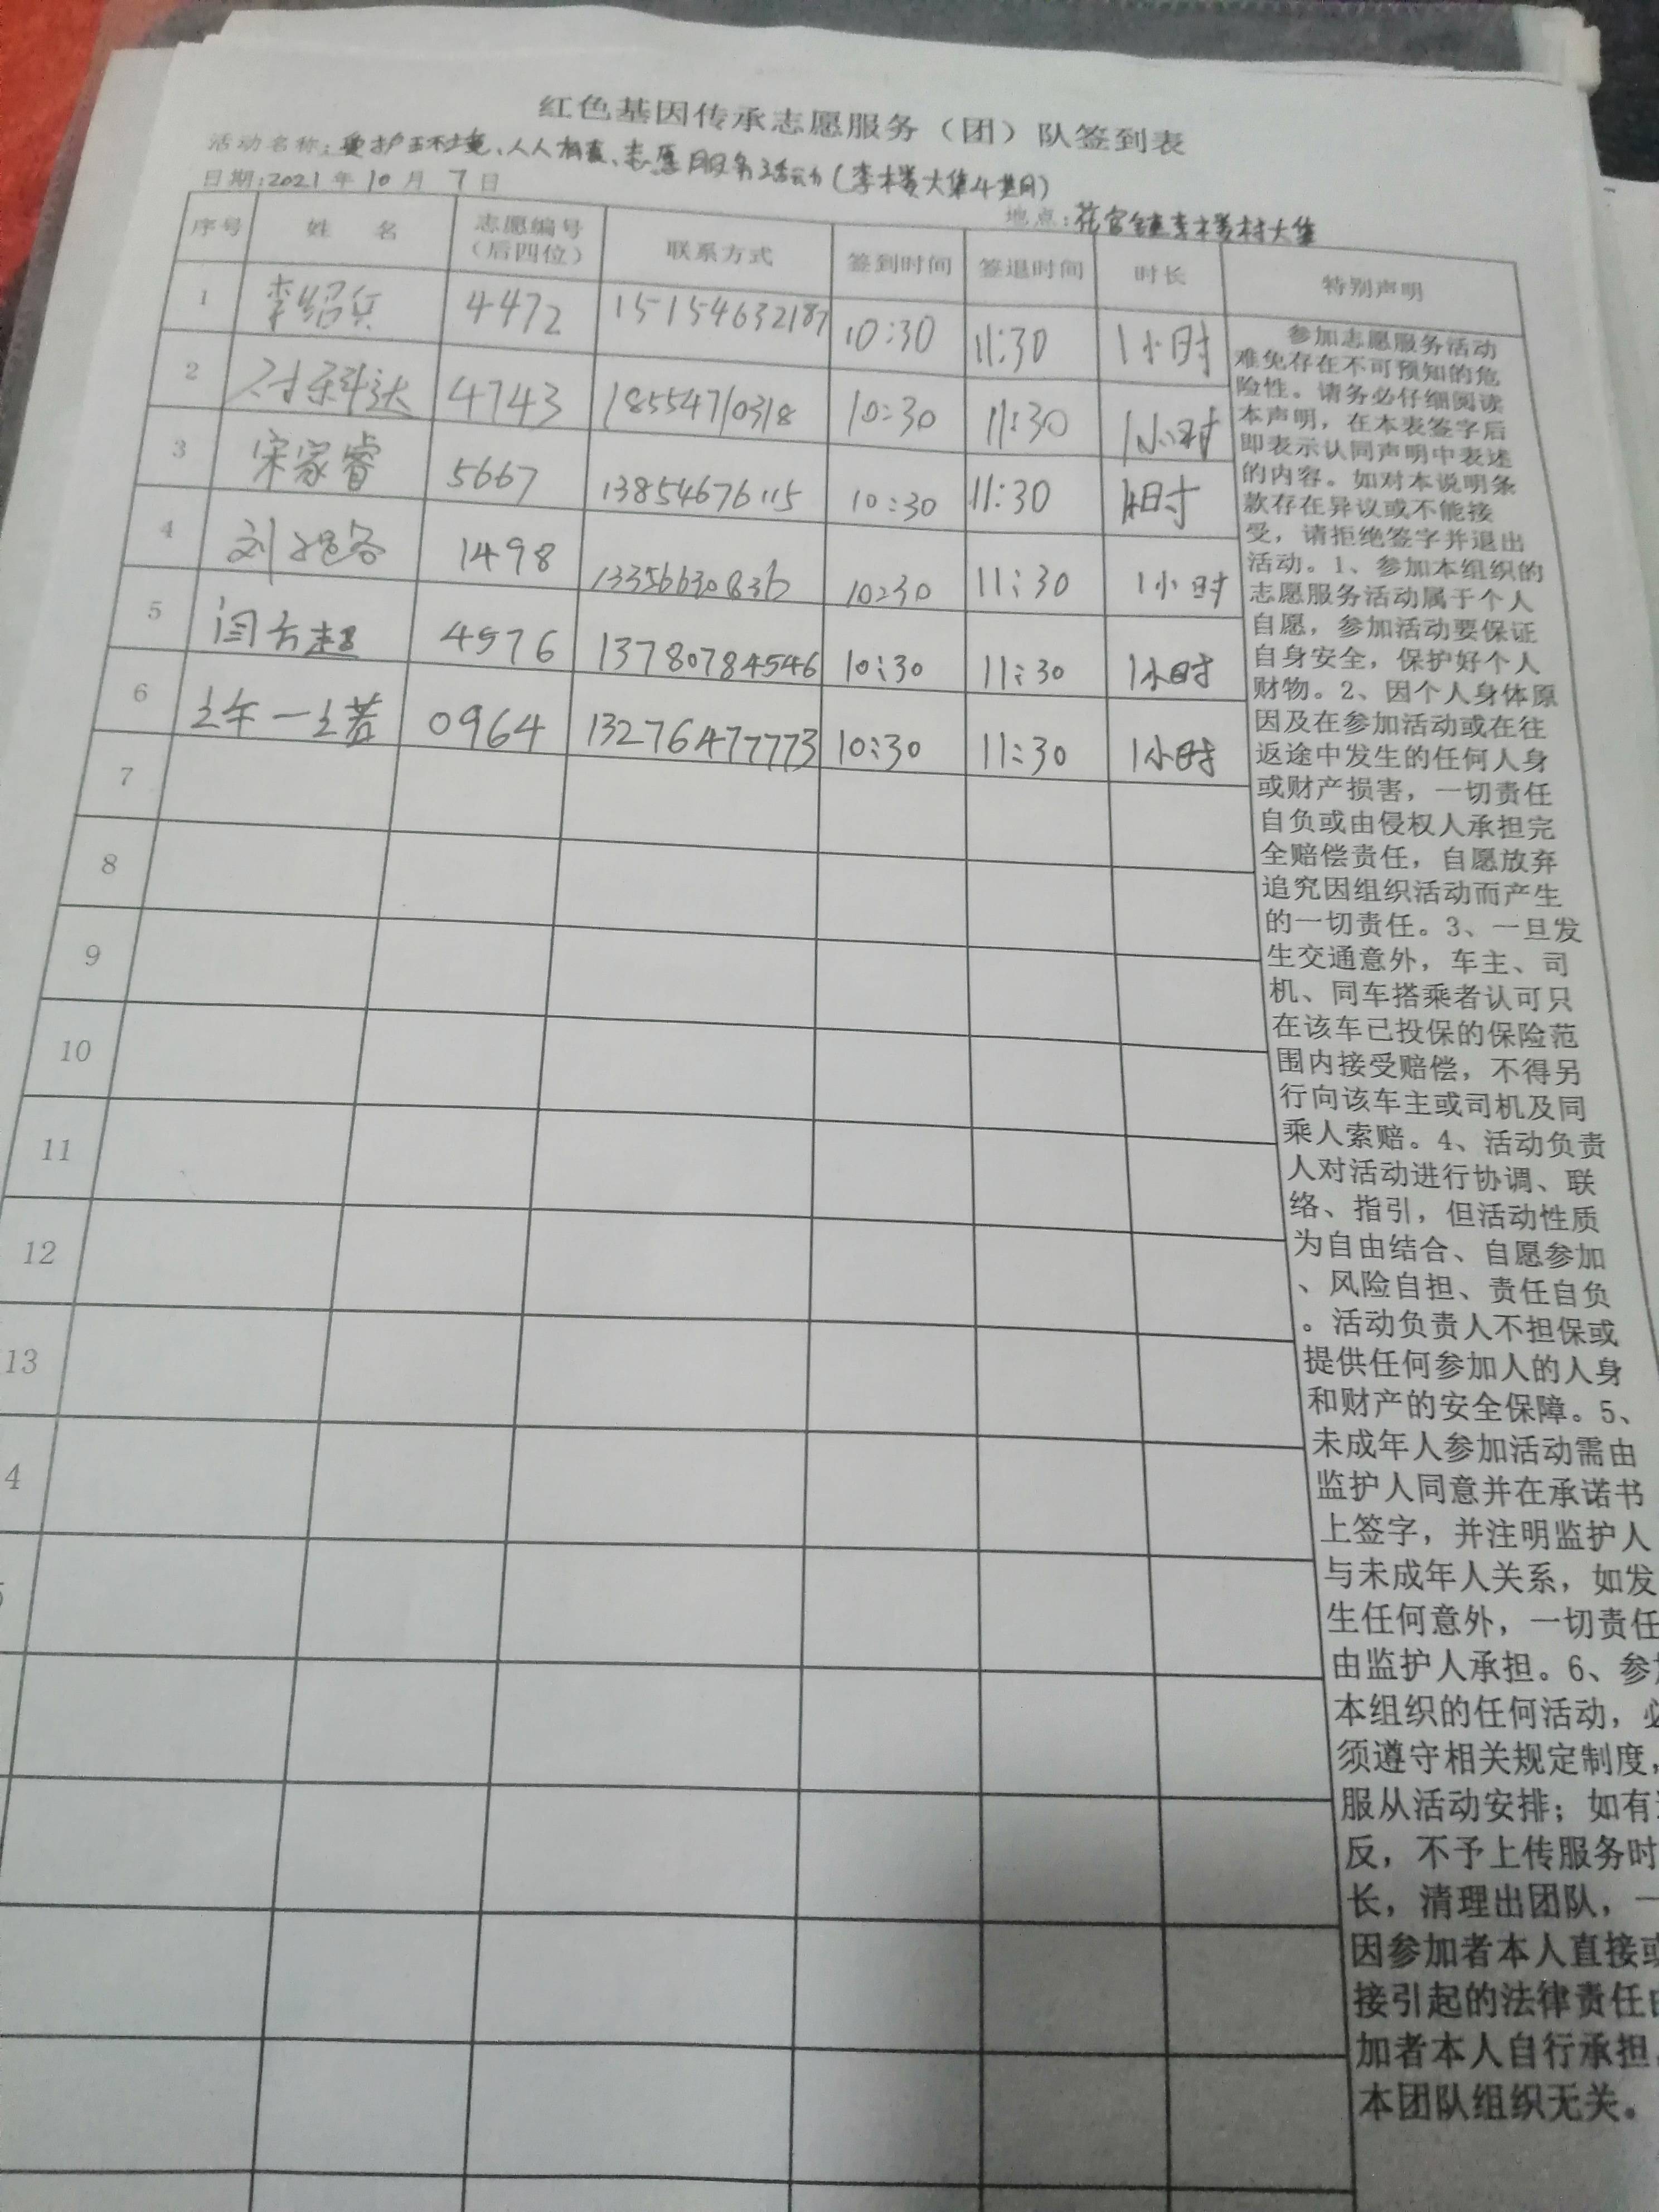 红色基因传承志愿服务（团）队签到表
活动名称：爱护环境、人人有责、志愿服务活动（李楼大集4
日期：2021年10月7日
地点：花官镇李楼村大集
序号 姓 名 志愿编号（后四位） 联系方式 签到时间 签退时间 时长 特别声明
1 李绍兵 4472 15154632187 10:30 11:30 1小时
2 4743 18554710318 10:30 11:30 1小时
3 宋家睿 5667 13854676115 10:30 11:30 1小时
4 刘 1498 13356630836 10:30 11:30 1小时
5 闫方超 4976 13780784546 10:30 11:30 1小时
6 0964 13276477773 10:30 11:30 1小时
7
8
9
10
11
12
13
4
参加志愿服务活动
难免存在不可预知的危
险性。请务必仔细阅读
本声明，在本表签字后
即表示认同声明中表述
的内容。如对本说明条
款存在异议或不能接
受，请拒绝签字并退出
活动。1、参加本组织的
志愿服务活动属于个人
自愿，参加活动要保证
自身安全，保护好个人
财物。2、因个人身体原
因及在参加活动或在往
返途中发生的任何人身
或财产损害，一切责任
自负或由侵权人承担完
全赔偿责任，自愿放弃
追究因组织活动而产生
的一切责任。3、一旦发
生交通意外，车主、司
机、同车搭乘者认可只
在该车已投保的保险范
围内接受赔偿，不得另
行向该车主或司机及同
乘人索赔。4、活动负责
人对活动进行协调、联
络、指引，但活动性质
为自由结合、自愿参加
、风险自担、责任自负
。活动负责人不担保或
提供任何参加人的人身
和财产的安全保障。5、
未成年人参加活动需由
监护人同意并在承诺书
上签字，并注明监护人
与未成年人关系，如发
生任何意外，一切责任
由监护人承担。6、参
本组织的任何活动，必
须遵守相关规定制度，
服从活动安排；如有
反，不予上传服务时
长，清理出团队，一
因参加者本人直接或
接引起的法律责任
加者本人自行承担，
本团队组织无关。